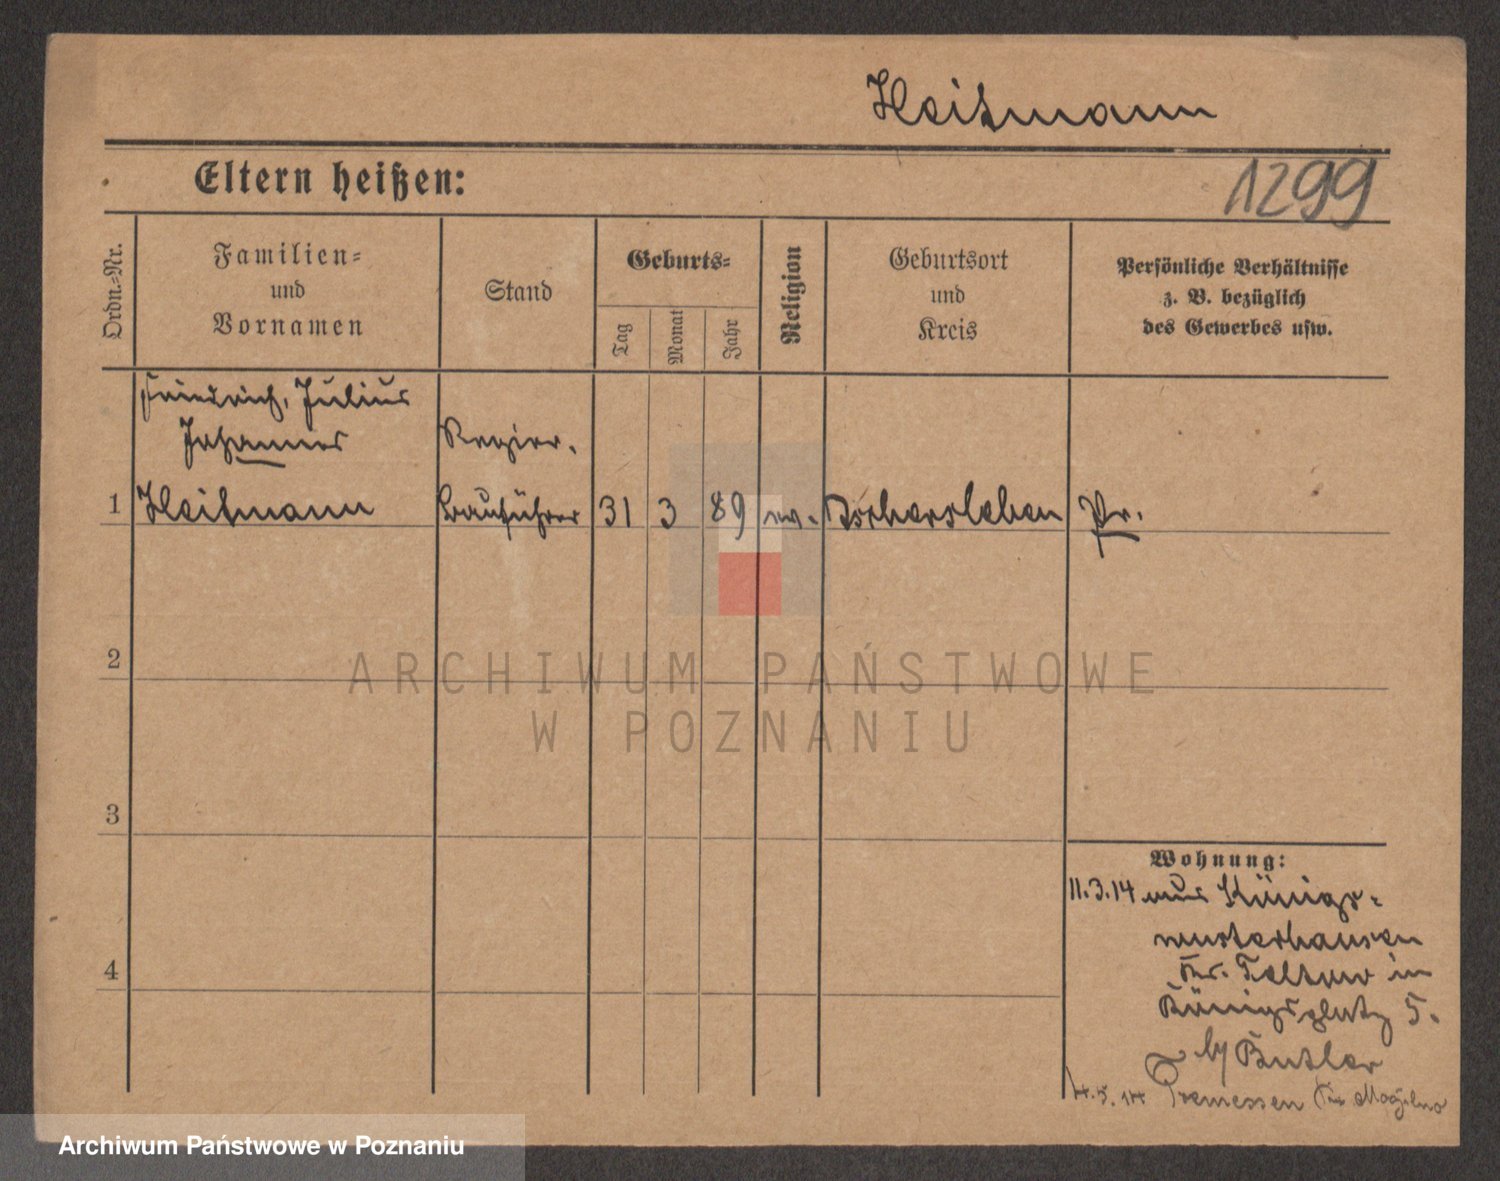 Heitmann
Eltern heißen:
1299
Ordn.-Nr.
Familien-
und
Vornamen
Stand
Geburts-
Tag
Monat
Jahr
Religion
Geburtsort
und
Kreis
Persönliche Verhältnisse
z. B. bezüglich
des Gewerbes usw.
Friedrich, Julius
Johannes
Regier.
1 Heitmann Bauführer 31 3 89 ev. Oschersleben Pr.
2
ARCHIWUM PAŃSTWOWE
W POZNANIU
3
Wohnung:
11.3.14 aus Königs-
wusterhausen
Kr. Teltow in
Königsplatz 5.
b/ Butler
4
4.5.14 Tremessen Kr Mogilno
Archiwum Państwowe w Poznaniu